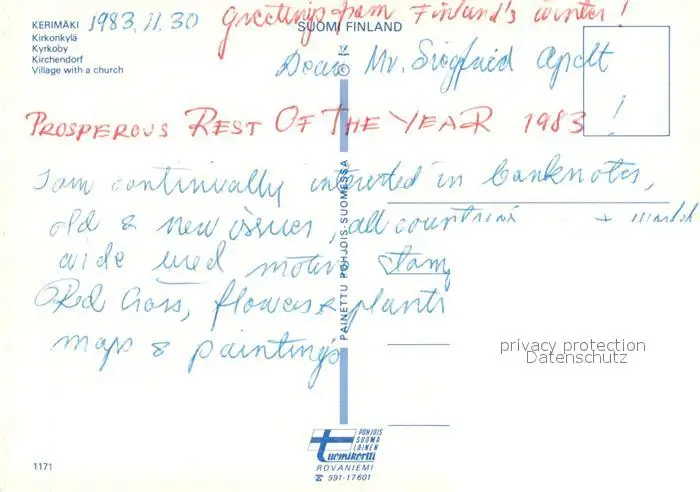 KERIMÄKI
Kirkonkylä
Kyrkoby
Kirchendorf
Village with a church
1983.11.30
Greetings from Finland's winter!
SUOMI FINLAND
Dear Mr. Siegfried Apelt !
PROSPEROUS REST OF THE YEAR 1983
I am continually interested in banknotes,
old & new issues, all countries + world
wide used motive stamp
Red Cross, flowers & plants
maps & paintings
PAINETTU POHJOIS-SUOMESSA
privacy protection
Datenschutz
POHJOIS
SUOMA
LAINEN
tuomikortti
ROVANIEMI
☎ 991-17601
1171